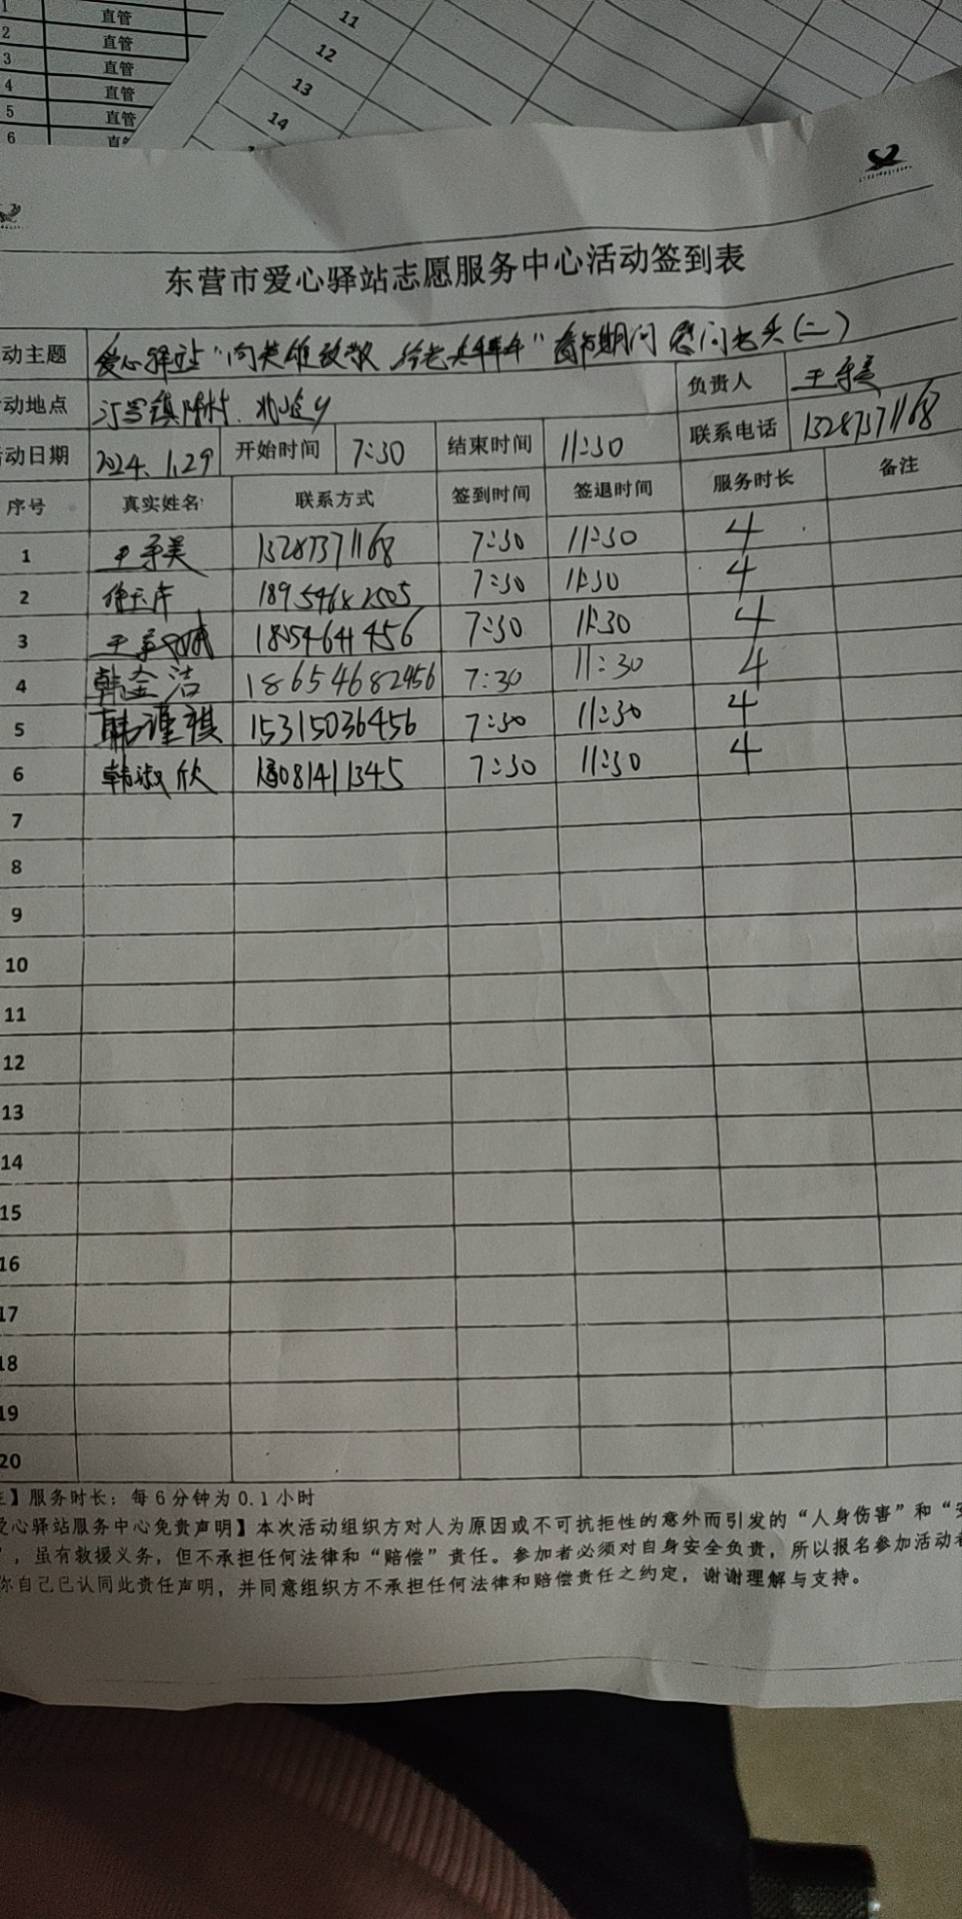 1 直管
2 直管
3 直管
4 直管
5 直管
6
11
12
13
14
东营市爱心驿站志愿服务中心活动签到表
动主题 爱心驿站“向英雄致敬 给老兵拜年”春节期间慰问老兵(二)
动地点 汀罗镇 负责人
动日期 2024.1.29 开始时间 7:30 结束时间 11:30 联系电话 13287371168
序号 真实姓名 联系方式 签到时间 签退时间 服务时长 备注
1 13287371168 7:30 11:30 4
2 18954682505 7:30 11:30 4
3 18254641456 7:30 11:30 4
4 韩金洁 18654682456 7:30 11:30 4
5 韩瑾祺 15315036456 7:30 11:30 4
6 韩淑欣 7:30 11:30 4
7
8
9
10
11
12
13
14
15
16
17
18
19
20
】服务时长：每6分钟为0.1小时
爱心驿站服务中心免责声明】本次活动组织方对人为原因或不可抗拒性的意外而引发的“人身伤害”和“
”，虽有救援义务，但不承担任何法律和“赔偿”责任。参加者必须对自身安全负责，所以报名参加活动
你自己已认同此责任声明，并同意组织方不承担任何法律和赔偿责任之约定，谢谢理解与支持。